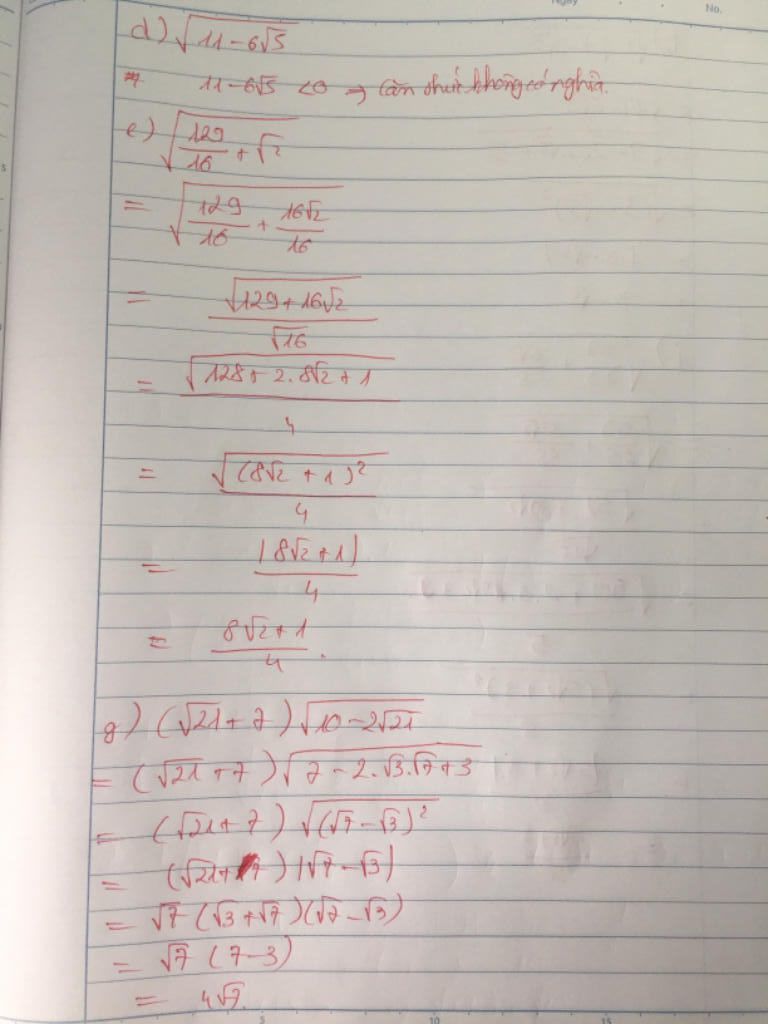 No.
d) √(11-6√5)
11-6√5 <0 ⇒ Căn thức không có nghĩa.
e) √(129/16 + √2)
= √(129/16 + 16√2/16)
= √(129+16√2) / √16
= √(128+2.8√2+1) / 4
= √((8√2+1)²) / 4
= |8√2+1| / 4
= (8√2+1) / 4.
g) (√21+7)√(10-2√21)
= (√21+7)√(7-2.√3.√7+3)
= (√21+7)√((√7-√3)²)
= (√21+7)|√7-√3|
= √7(√3+√7)(√7-√3)
= √7(7-3)
= 4√7.
5 10 15